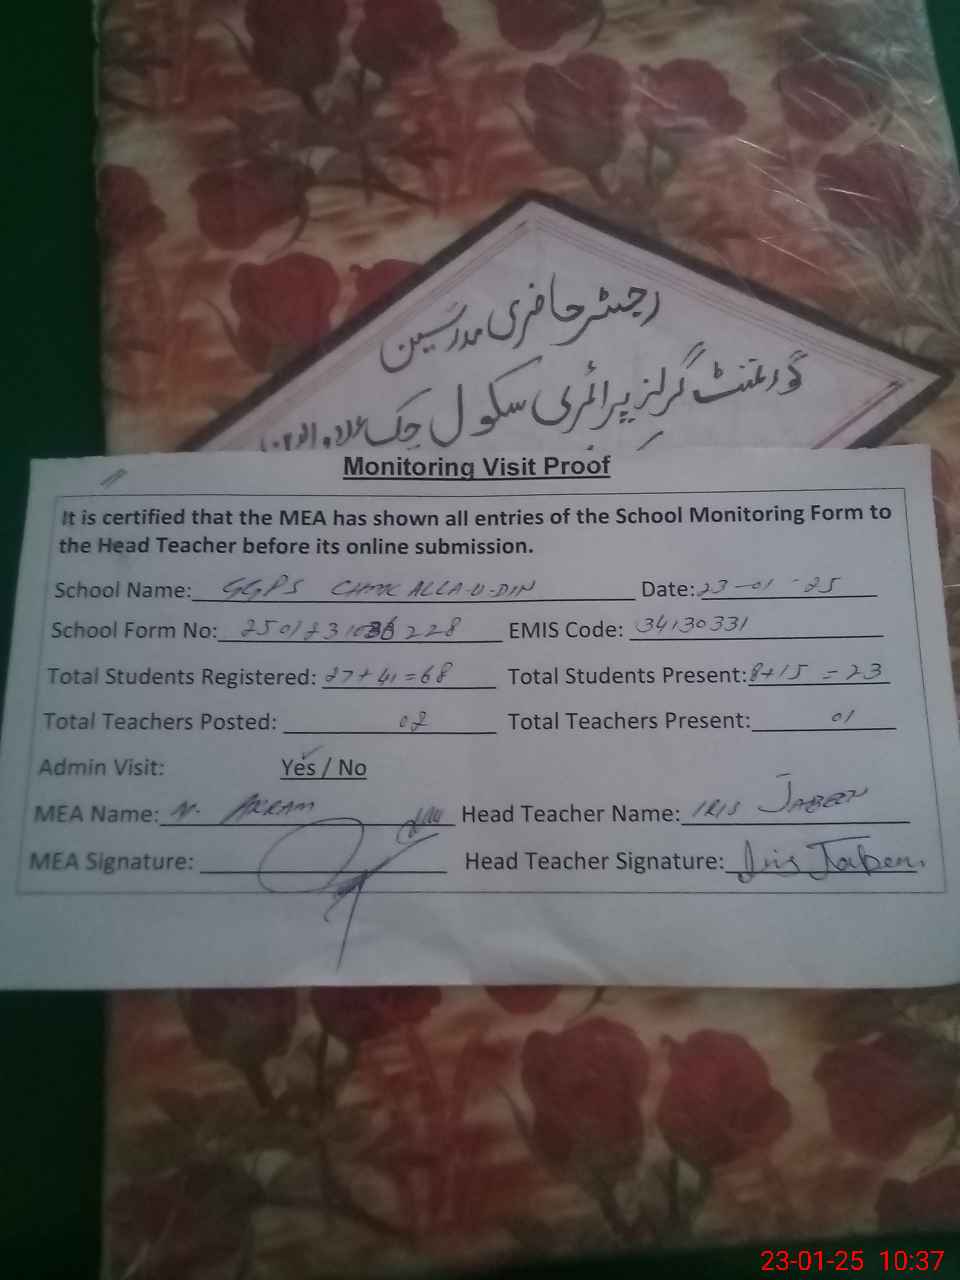 رجسٹر حاضری مدرسین
گورنمنٹ گرلز پرائمری سکول چک علاؤالدین
Monitoring Visit Proof
It is certified that the MEA has shown all entries of the School Monitoring Form to
the Head Teacher before its online submission.
School Name: GGPS CHAK ALLA-U-DIN Date: 23-01-25
School Form No: EMIS Code: 34130331
Total Students Registered: 27+41=68 Total Students Present: 8+15=23
Total Teachers Posted: 02 Total Teachers Present: 01
Admin Visit: Yes / No
MEA Name: AKRAM Head Teacher Name: IRIS JABEEN
MEA Signature: Head Teacher Signature: Iris Jabeen.
23-01-25 10:37